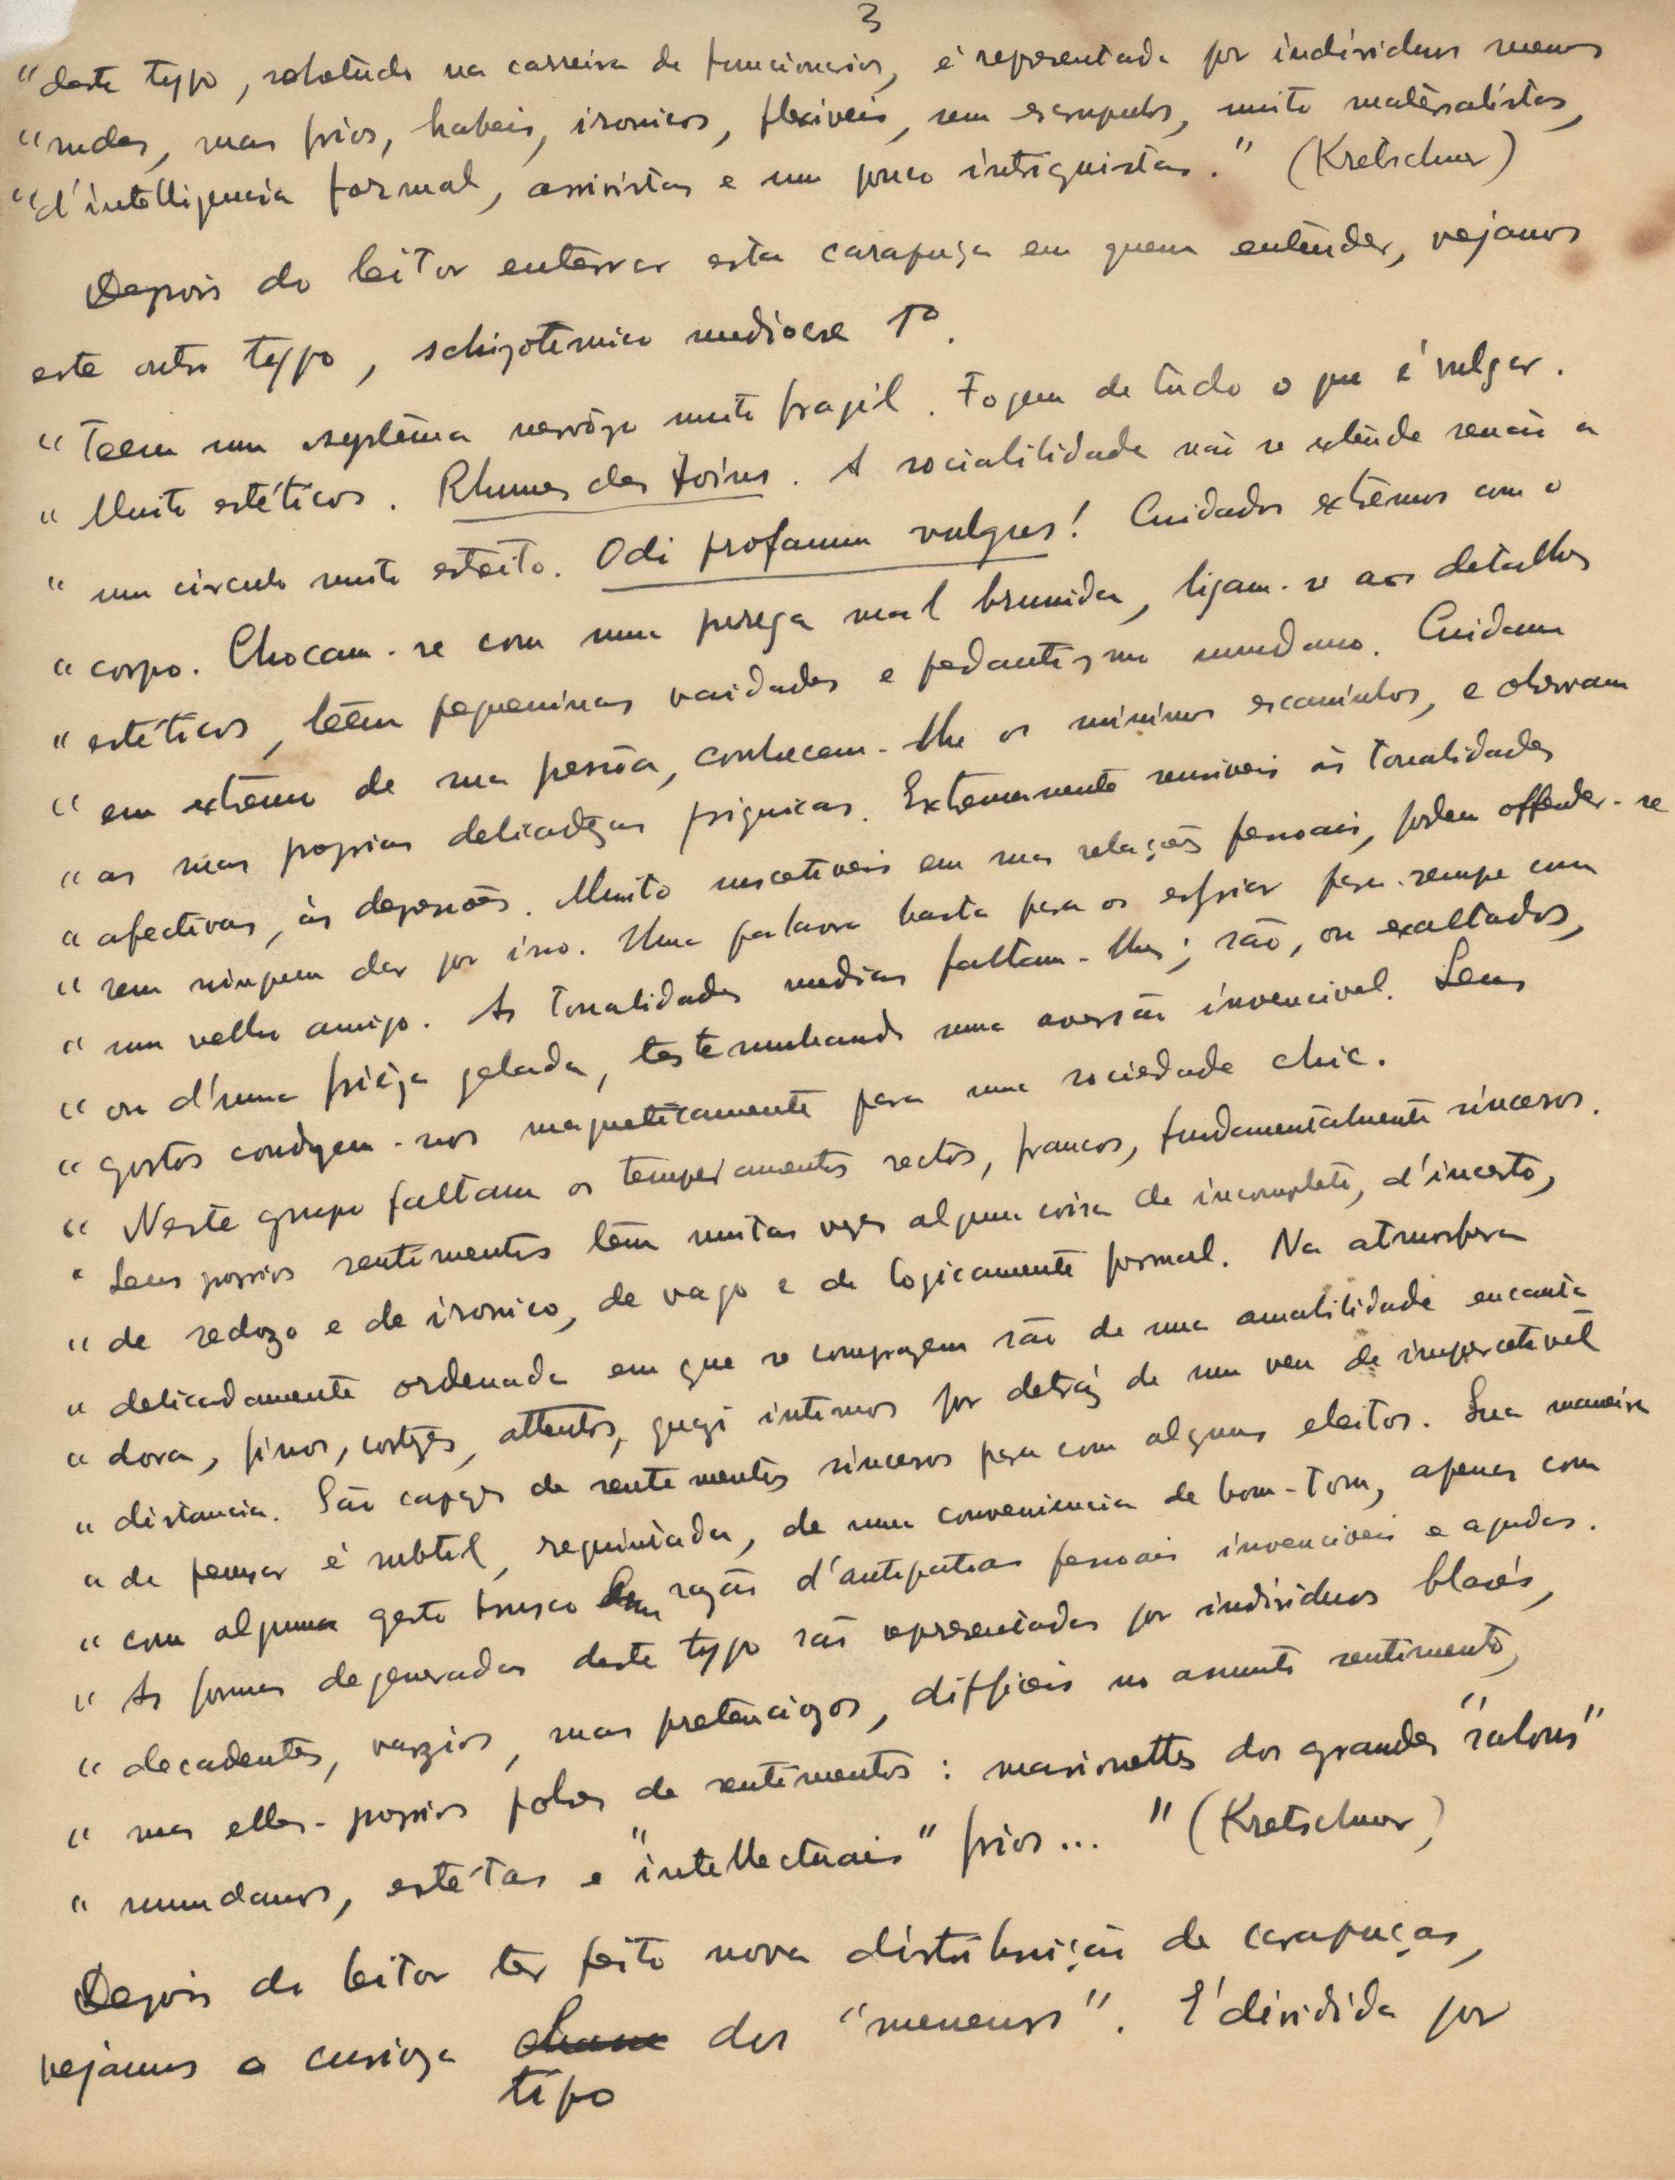 3
"deste typo, sobetudo na carreira de funcionarios, é representada por individuos menos
"rudes, mas frios, habeis, ironicos, flexiveis, sem escrupulos, muito materialistas,
"d'intelligencia formal, arrivistas e um pouco intriguistas." (Kretschmer)
Depois do leitor enterrar esta carapuça em quem entender, vejamos
este outro typo, schizotimico mediocre 1º.
"Teem um systema nervôzo muito fragil. Fogem de tudo o que é vulgar.
"Muito estéticos. Rhumes des foins. A sociabilidade não se extende senão a
"um circulo muito estreito. Odi profanum vulgus! Cuidados extremos com o
"corpo. Chocam-se com uma prega mal brunida, ligam-se aos detalhes
"estéticos, têem pequeninas vaidades e pedantismo mundano. Cuidam
"em extremo de sua pessôa, conhecem-lhe os minimos escaninhos, e observam
"as suas proprias delicadezas psiquicas. Extremamente sensiveis ás tonalidades
"afectivas, ás depressões. Muito suscetiveis em suas relações pessoais, podem offender-se
"sem ninguem dar por isso. Uma palavra basta para os esfriar para sempre com
"um velho amigo. As tonalidades medias faltam-lhes; são, ou exaltados,
"ou d'uma frieza gelada, testemunhando uma aversão invencivel. Seus
"gostos conduzem-nos magneticamente para uma sociedade chic.
"Neste grupo faltam os temperamentos rectos, francos, fundamentalmente sinceros.
"Seus proprios sentimentos têm muitas vezes alguma coisa de incompleto, d'incerto,
"de redozo e de ironico, de vago e de logicamente formal. Na atmosfera
"delicadamente ordenada em que se comprazem são de uma amabilidade encanta
"dora, finos, cortezes, attentos, quazi intimos por detráz de um veu de impercetivel
"distancia. São capazes de sentimentos sinceros para com alguns eleitos. Sua maneira
"de pensar é subtil, requintada, de uma conveniencia de bom-tom, apenas com
"com algum gesto brusco em razão d'antipatias pessoais invenciveis e agudas.
"As formas degeneradas deste typo são representadas por individuos blasés,
"decadentes, vazios, mas pretenciozos, difficeis no assunto sentimento,
"mas elles-proprios pobres de sentimentos: marionettes dos grandes "salons"
"mundanos, estétas e "intellectuais" frios..." (Kretschmer)
Depois do leitor ter feito nova distribuição de carapuças,
vejamos o curioza dos "meneurs". É dividida por
tipo